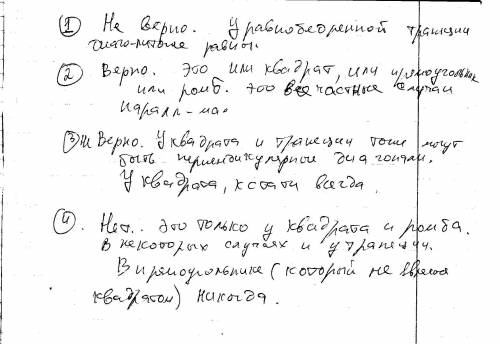 ① Не верно. У равнобедренной трапеции
равны.
② Верно. Это или квадрат, или прямоугольник
или ромб. Это все частные случаи
паралл-ма.
③ Верно. У квадрата и трапеции тоже могут
быть перпендикулярные диагонали.
У квадрата, кстати всегда.
④. Нет.. это только у квадрата и ромба.
В некоторых случаях и у трапеции.
В прямоугольнике (который не явл
квадратом) никогда.